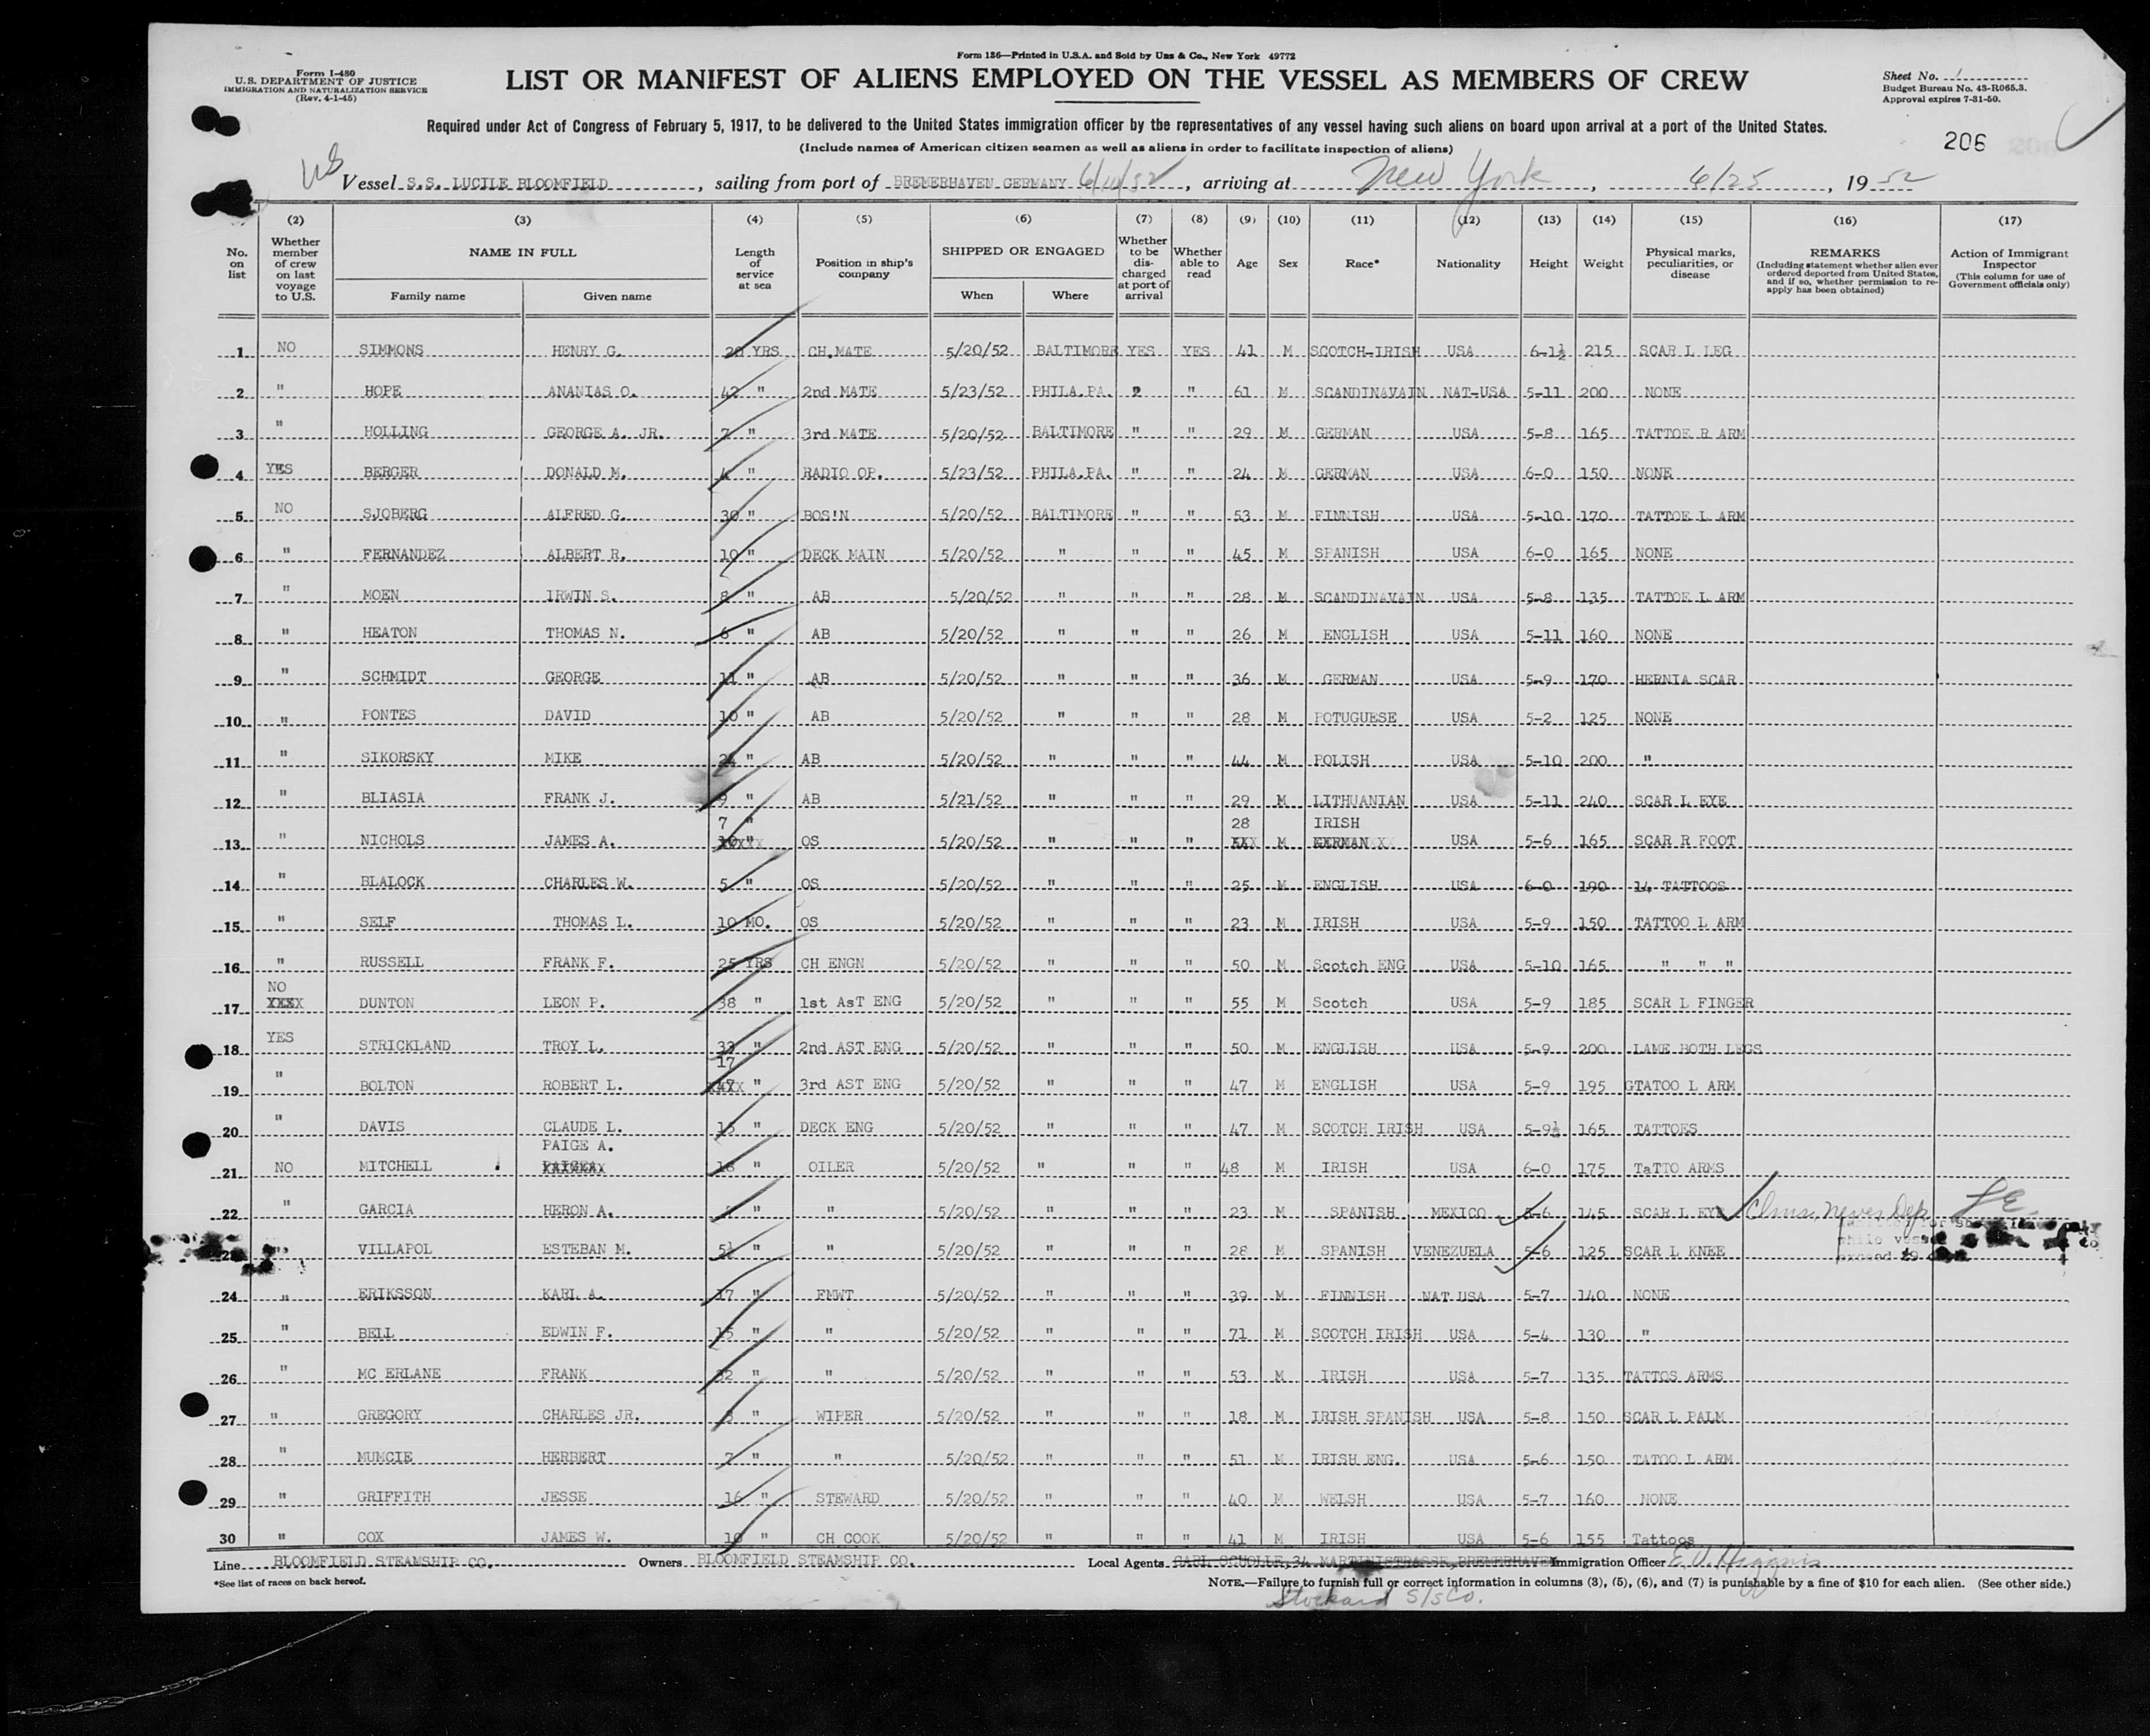 Form 136—Printed in U.S.A. and Sold by Unz & Co., New York 49772
Form I-480
U.S. DEPARTMENT OF JUSTICE
IMMIGRATION AND NATURALIZATION SERVICE
(Rev. 4-1-45)
LIST OR MANIFEST OF ALIENS EMPLOYED ON THE VESSEL AS MEMBERS OF CREW
Sheet No. 1
Budget Bureau No. 43-R065.3.
Approval expires 7-31-50.
Required under Act of Congress of February 5, 1917, to be delivered to the United States immigration officer by the representatives of any vessel having such aliens on board upon arrival at a port of the United States.
(Include names of American citizen seamen as well as aliens in order to facilitate inspection of aliens)
206
Vessel S.S. LUCILE BLOOMFIELD, sailing from port of BREMERHAVEN GERMANY 6/14/52, arriving at New York, 6/25, 1952
(2) (3) (4) (5) (6) (7) (8) (9) (10) (11) (12) (13) (14) (15) (16) (17)
No. on list
Whether member of crew on last voyage to U.S.
NAME IN FULL
Family name Given name
Length of service at sea
Position in ship's company
SHIPPED OR ENGAGED
When Where
Whether to be discharged at port of arrival
Whether able to read
Age Sex Race* Nationality Height Weight
Physical marks, peculiarities, or disease
REMARKS
(Including statement whether alien ever ordered deported from United States, and if so, whether permission to reapply has been obtained)
Action of Immigrant Inspector
(This column for use of Government officials only)
1 NO SIMMONS HENRY G. 20 YRS CH.MATE 5/20/52 BALTIMORE YES YES 41 M SCOTCH-IRISH USA 6-1½ 215 SCAR L LEG
2 " HOPE ANANIAS O. 42 " 2nd MATE 5/23/52 PHILA.PA. " " 61 M SCANDINAVAIN NAT-USA 5-11 200 NONE
3 " HOLLING GEORGE A. JR. 7 " 3rd MATE 5/20/52 BALTIMORE " " 29 M GERMAN USA 5-8 165 TATTOE R ARM
4 YES BERGER DONALD M. 4 " RADIO OP. 5/23/52 PHILA.PA. " " 24 M GERMAN USA 6-0 150 NONE
5 NO SJOBERG ALFRED G. 30 " BOS'N 5/20/52 BALTIMORE " " 53 M FINNISH USA 5-10 170 TATTOE L ARM
6 " FERNANDEZ ALBERT R. 10 " DECK MAIN 5/20/52 " " " 45 M SPANISH USA 6-0 165 NONE
7 " MOEN IRWIN S. 8 " AB 5/20/52 " " " 28 M SCANDINAVAIN USA 5-8 135 TATTOE L ARM
8 " HEATON THOMAS N. 6 " AB 5/20/52 " " " 26 M ENGLISH USA 5-11 160 NONE
9 " SCHMIDT GEORGE 11 " AB 5/20/52 " " " 36 M GERMAN USA 5-9 170 HERNIA SCAR
10 " PONTES DAVID 10 " AB 5/20/52 " " " 28 M POTUGUESE USA 5-2 125 NONE
11 " SIKORSKY MIKE 24 " AB 5/20/52 " " " 44 M POLISH USA 5-10 200 "
12 " BLIASIA FRANK J. 9 " AB 5/21/52 " " " 29 M LITHUANIAN USA 5-11 240 SCAR L EYE
13 " NICHOLS JAMES A. 7 " OS 5/20/52 " " " 28 M IRISH USA 5-6 165 SCAR R FOOT
14 " BLALOCK CHARLES W. 5 " OS 5/20/52 " " " 25 M ENGLISH USA 6-0 190 14 TATTOOS
15 " SELF THOMAS L. 10 MO. OS 5/20/52 " " " 23 M IRISH USA 5-9 150 TATTOO L ARM
16 " RUSSELL FRANK F. 25 YRS CH ENGN 5/20/52 " " " 50 M Scotch ENG USA 5-10 165 " " "
17 NO DUNTON LEON P. 38 " 1st AsT ENG 5/20/52 " " " 55 M Scotch USA 5-9 185 SCAR L FINGER
18 YES STRICKLAND TROY L. 33 " 2nd AST ENG 5/20/52 " " " 50 M ENGLISH USA 5-9 200 LAME BOTH LEGS
19 " BOLTON ROBERT L. 17 " 3rd AST ENG 5/20/52 " " " 47 M ENGLISH USA 5-9 195 GTATOO L ARM
20 " DAVIS CLAUDE L. 15 " DECK ENG 5/20/52 " " " 47 M SCOTCH IRISH USA 5-9½ 165 TATTOES
21 NO MITCHELL PAIGE A. 18 " OILER 5/20/52 " " " 48 M IRISH USA 6-0 175 TaTTO ARMS
22 " GARCIA HERON A. " " 5/20/52 " " " 23 M SPANISH MEXICO 5-6 145 SCAR L EYE Clms. never dep.
23 " VILLAPOL ESTEBAN M. 5½ " " 5/20/52 " " " 28 M SPANISH VENEZUELA 5-6 125 SCAR L KNEE
while vessel
exceed 29
24 " ERIKSSON KARL A. 17 " FMWT 5/20/52 " " " 39 M FINNISH NAT USA 5-7 140 NONE
25 " BELL EDWIN F. 15 " " 5/20/52 " " " 71 M SCOTCH IRISH USA 5-4 130 "
26 " MC ERLANE FRANK 32 " " 5/20/52 " " " 53 M IRISH USA 5-7 135 TATTOS ARMS
27 " GREGORY CHARLES JR. " WIPER 5/20/52 " " " 18 M IRISH SPANISH USA 5-8 150 SCAR L PALM
28 " MUMCIE HERBERT 7 " " 5/20/52 " " " 51 M IRISH ENG. USA 5-6 150 TATOO L ARM
29 " GRIFFITH JESSE 16 " STEWARD 5/20/52 " " " 40 M WELSH USA 5-7 160 NONE
30 " COX JAMES W. 10 " CH COOK 5/20/52 " " " 41 M IRISH USA 5-6 155 Tattoos
Line BLOOMFIELD STEAMSHIP CO. Owners BLOOMFIELD STEAMSHIP CO. Local Agents CARL SCHOLLE, 34 MARTINISTRASSE, BREMERHAVEN Immigration Officer E. J. Higgins
*See list of races on back hereof.
NOTE.—Failure to furnish full or correct information in columns (3), (5), (6), and (7) is punishable by a fine of $10 for each alien. (See other side.)
Stockard S/S Co.